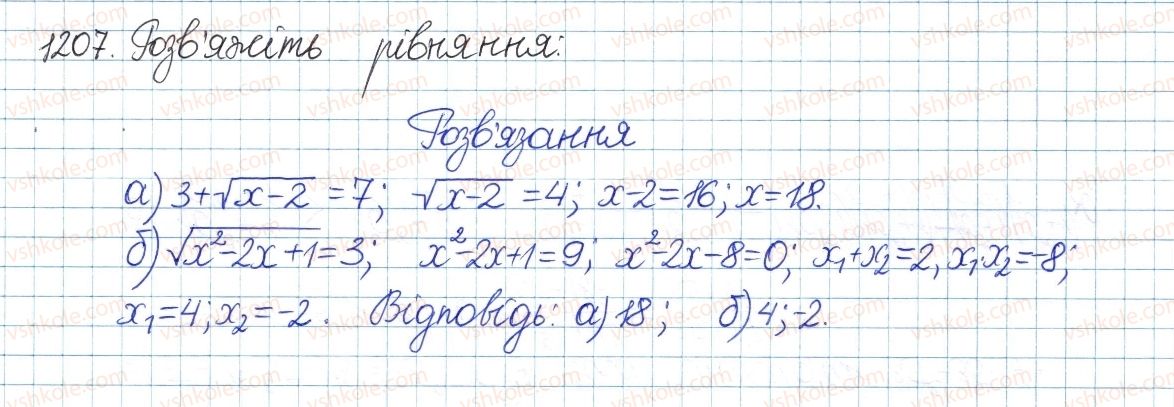 1207. Розв'яжіть рівняння:
Розв'язання
а) 3+√x-2 = 7; √x-2 = 4; x-2=16; x=18.
б) √x²-2x+1 = 3; x²-2x+1=9; x²-2x-8=0; x₁+x₂=2, x₁·x₂=-8;
x₁=4; x₂=-2. Відповідь: а) 18; б) 4; -2.